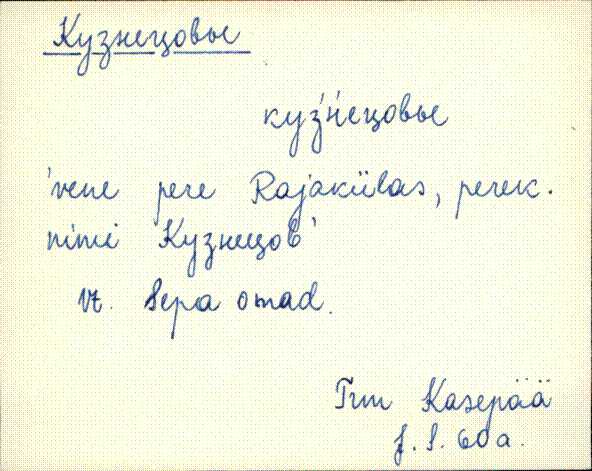 Кузнецовые
куз́н́ецовые
'vene pere Rajakülas, perek.
nimi Кузнецов'
vt. Sepa omad.
Trm Kasepää
f. S. 60a.